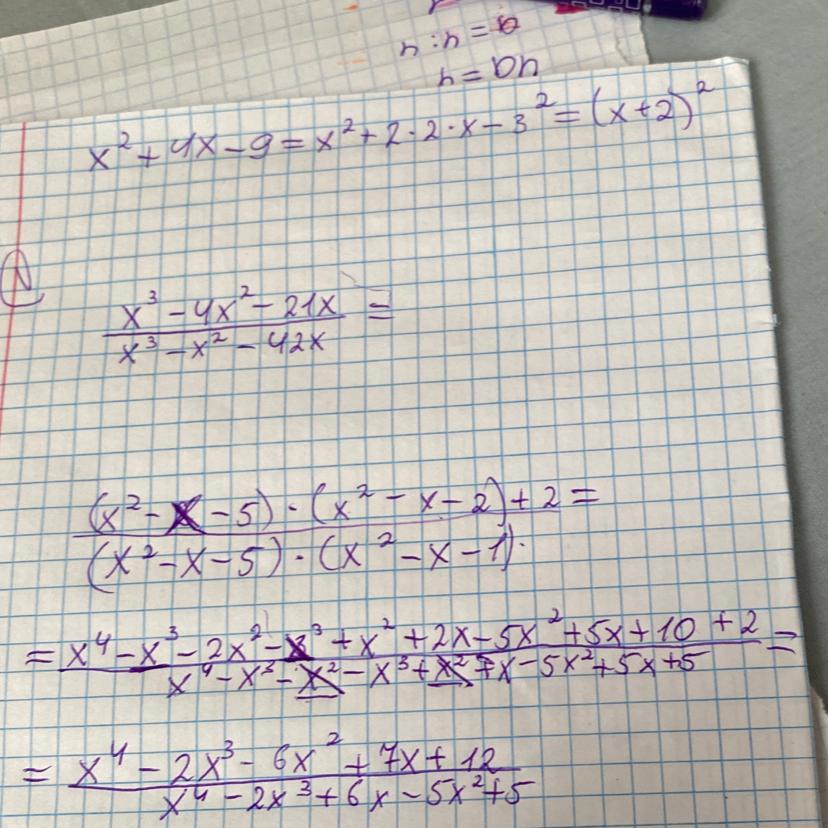 n : n = 6
n = 6n
x² + 4x - 9 = x² + 2 · 2 · x - 3² = (x + 2)²
N
(x³ - 4x² - 21x) / (x³ - x² - 42x) =
((x² - x - 5) · (x² - x - 2) + 2) / ((x² - x - 5) · (x² - x - 1)) =
= (x⁴ - x³ - 2x² - x³ + x² + 2x - 5x² + 5x + 10 + 2) / (x⁴ - x³ - x² - x³ + x² + x - 5x² + 5x + 5) =
= (x⁴ - 2x³ - 6x² + 7x + 12) / (x⁴ - 2x³ + 6x - 5x² + 5)